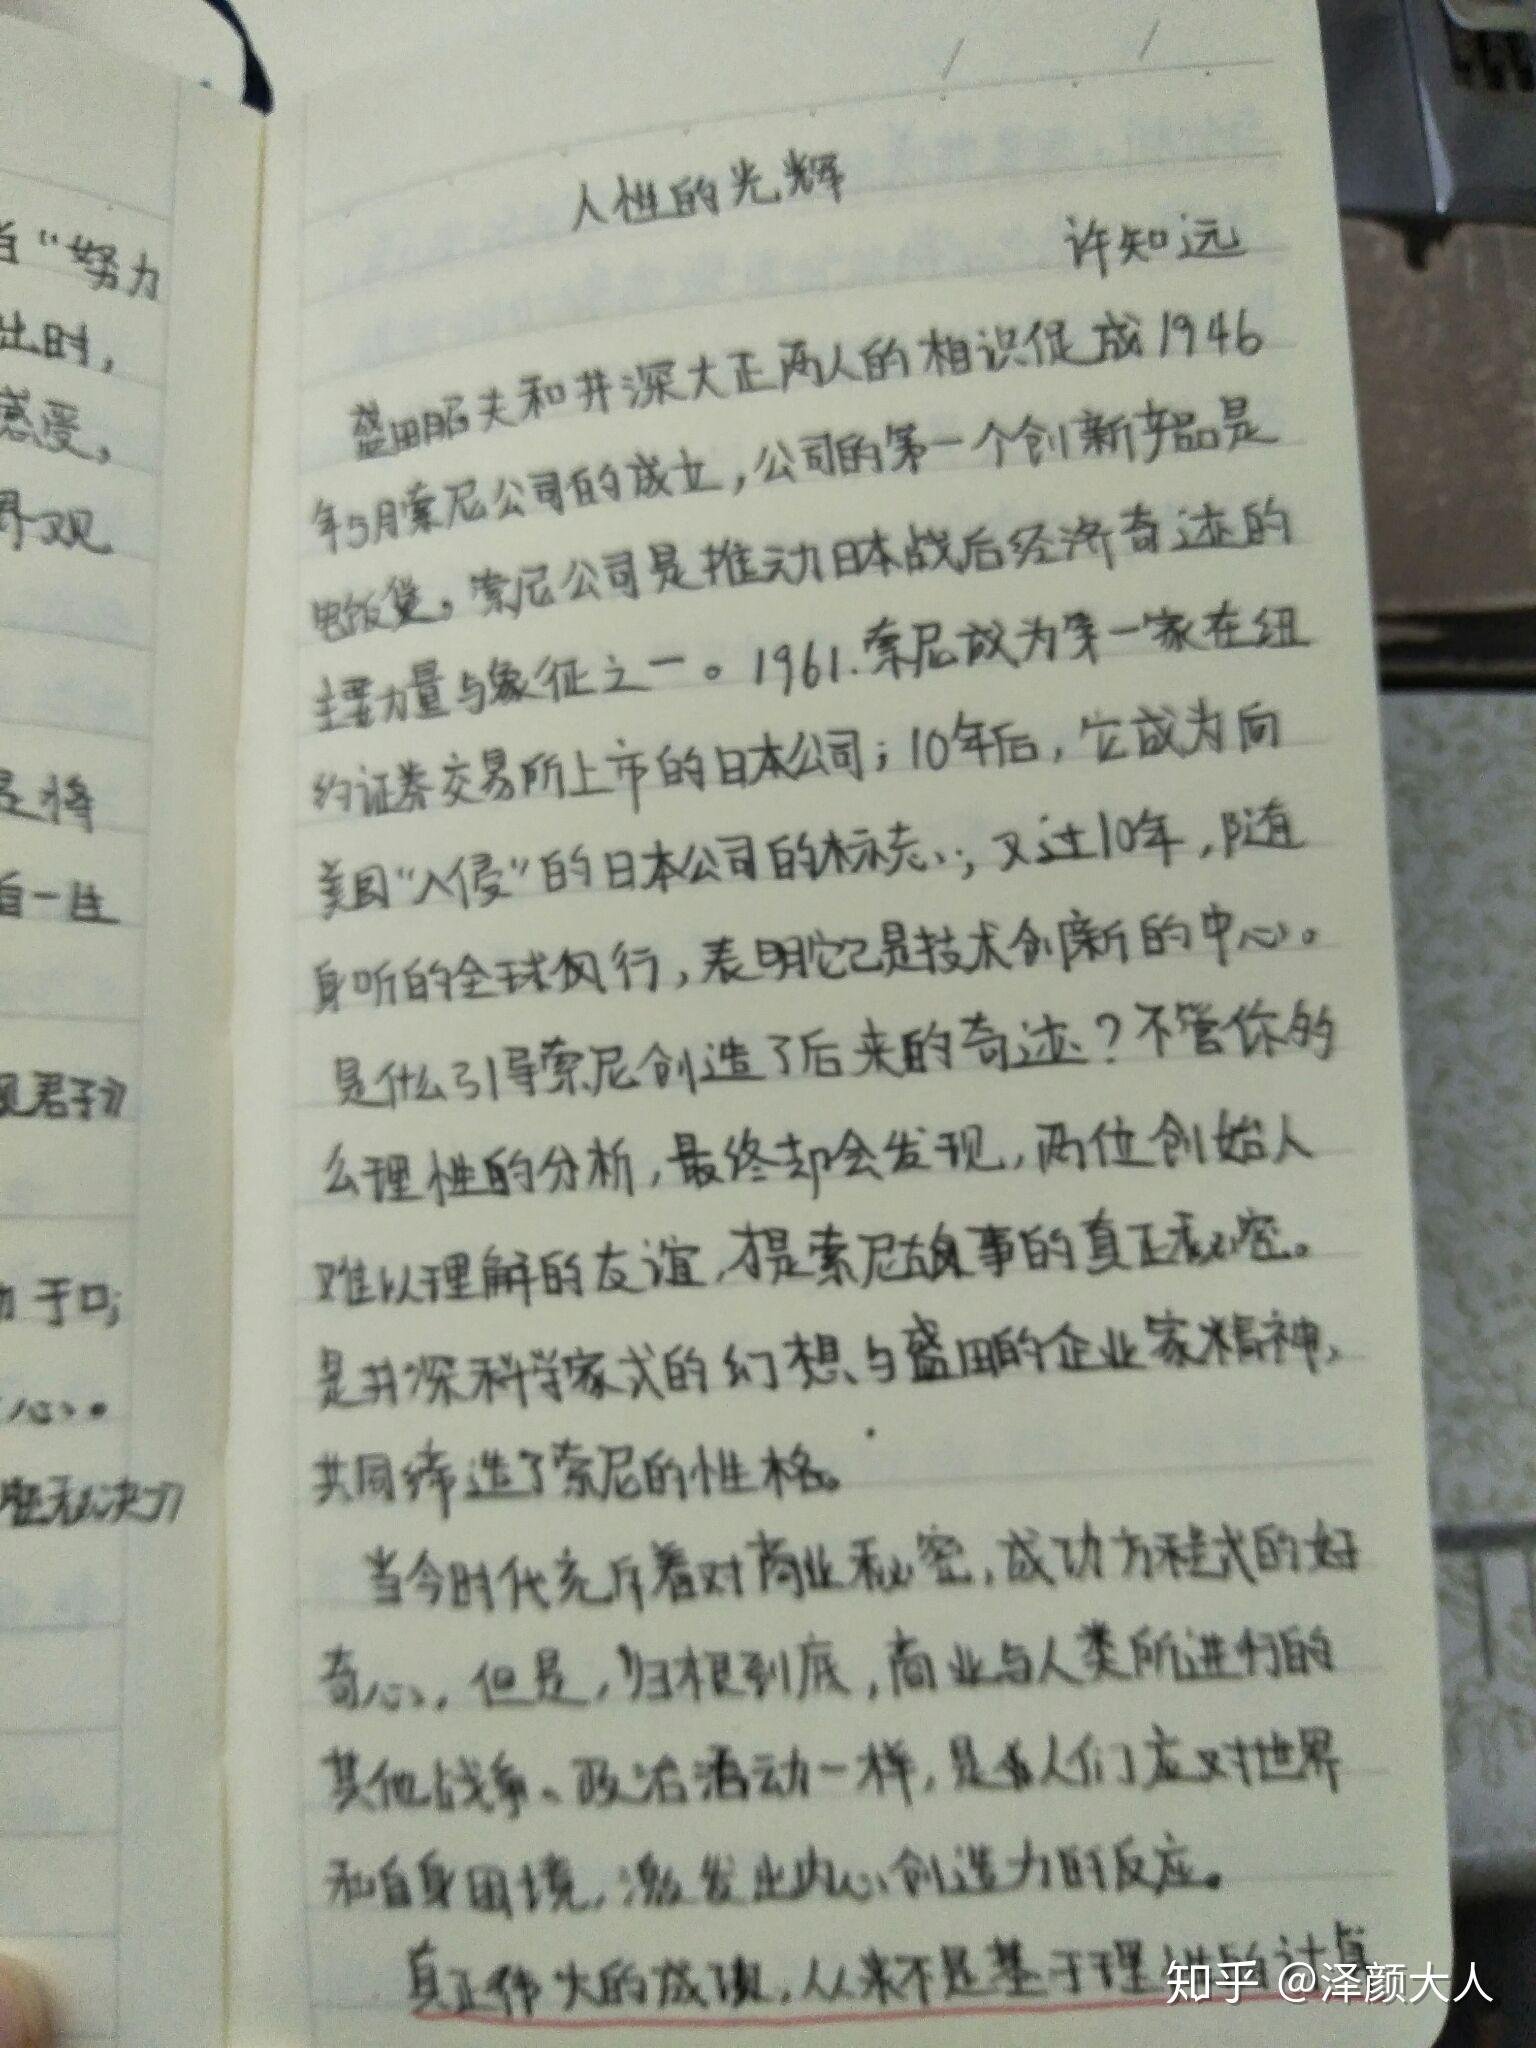 当“努力
出时，
感受，
界观
是将
自一生
君子》
于口；
心。
人性的光辉
许知远
盛田昭夫和井深大正两人的相识促成1946
年5月索尼公司的成立，公司的第一个创新产品是
电饭煲。索尼公司是推动日本战后经济奇迹的
主要力量与象征之一。1961.索尼成为第一家在纽
约证券交易所上市的日本公司；10年后，它成为向
美国“入侵”的日本公司的标志；又过10年，随
身听的全球风行，表明它已是技术创新的中心。
是什么引导索尼创造了后来的奇迹？不管你的
么理性的分析，最终却会发现，两位创始人
难以理解的友谊，才是索尼故事的真正秘密。
是井深科学家式的幻想与盛田的企业家精神，
共同缔造了索尼的性格。
当今时代充斥着对商业秘密，成功方程式的好
奇心，但是，归根到底，商业与人类所进行的
其他战争、政治活动一样，是人们应对世界
和自身困境，激发出内心创造力的反应。
真正伟大的成功，从来不是基于理性的计算
知乎 @泽颜大人